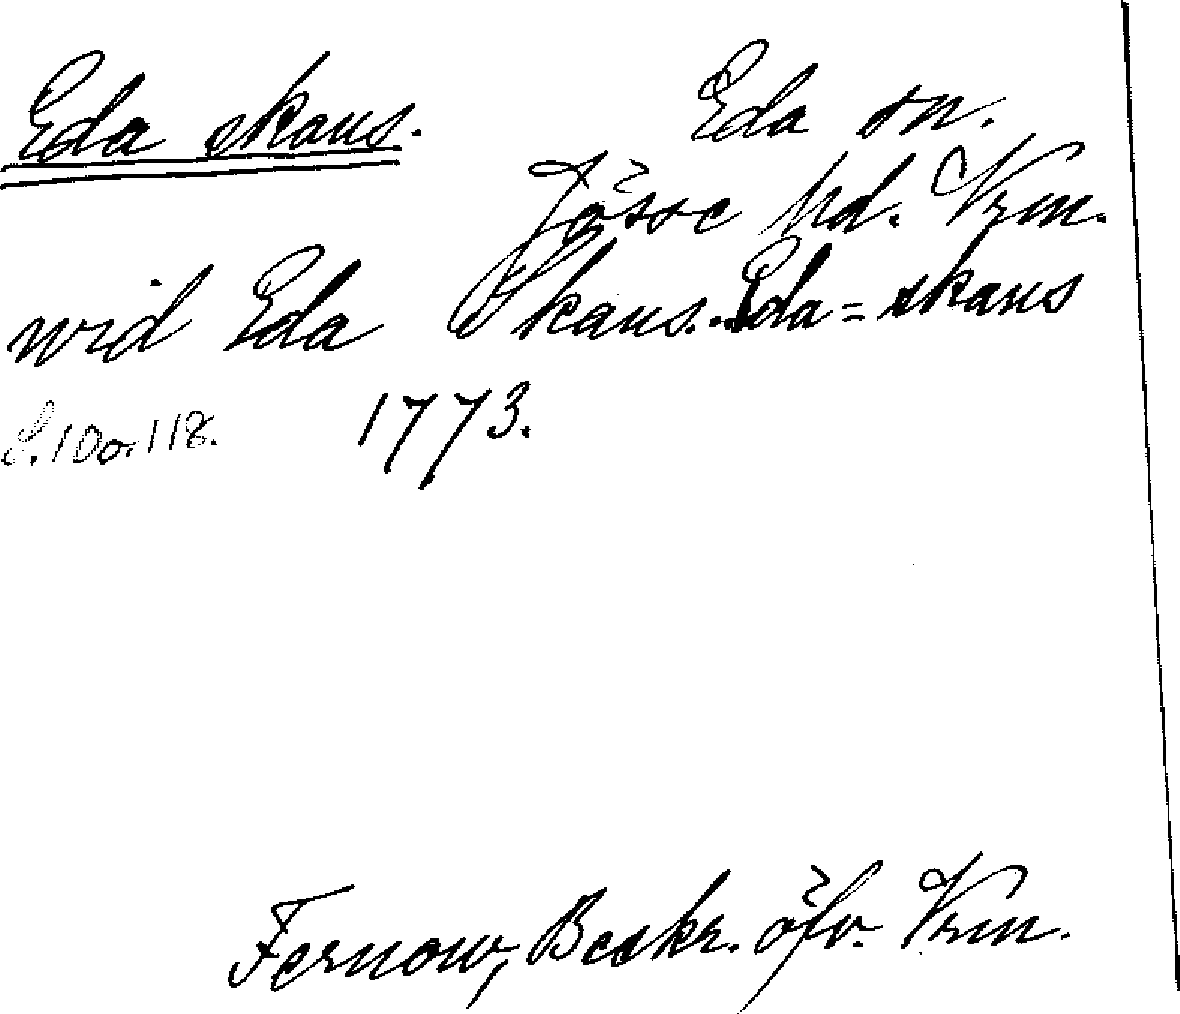 Eda skans. Eda sn.
Jösse hd. Vrm.
wid Eda Skans. Eda=skans
S. 10 o. 118. 1773.
Fernow, Beskr. öfv. Vrm.